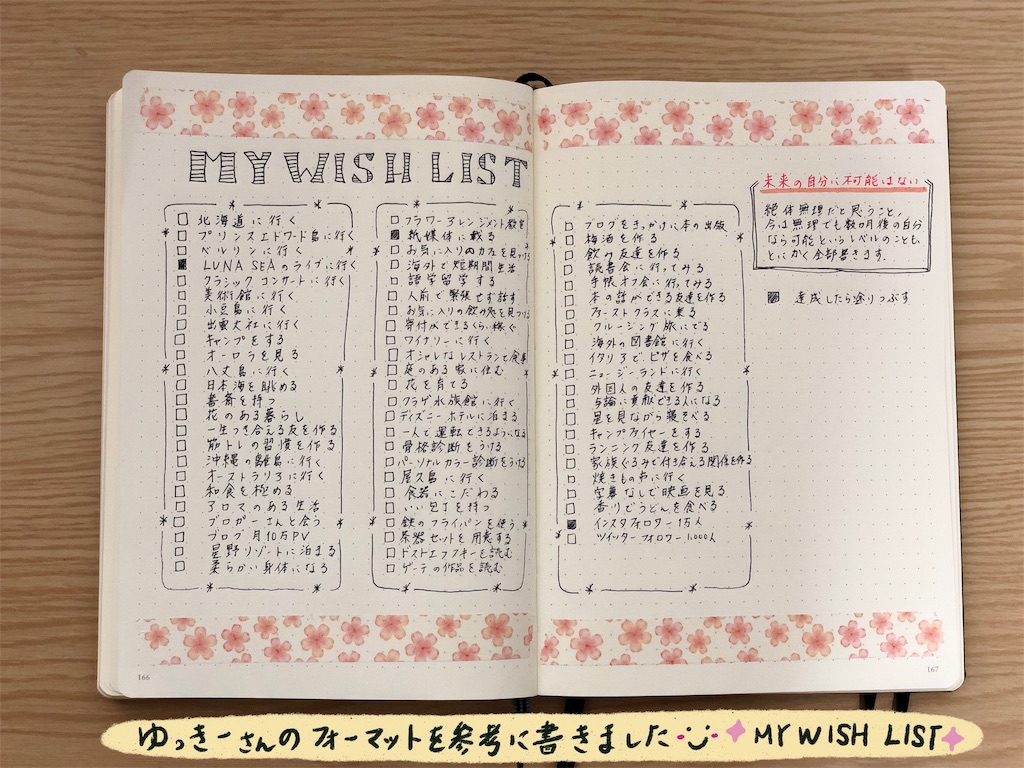 MY WISH LIST
北海道に行く
プリンスエドワード島に行く
ベルリンに行く
LUNA SEAのライブに行く
クラシックコンサートに行く
美術館に行く
小豆島に行く
出雲大社に行く
キャンプをする
オーロラを見る
八丈島に行く
日本海を眺める
書斎を持つ
花のある暮らし
一生つき合える友を作る
筋トレの習慣を作る
沖縄の離島に行く
オーストラリアに行く
和食を極める
アロマのある生活
ブロガーさんと会う
ブログ月10万PV
星野リゾートに泊まる
柔らかい身体になる
フラワーアレンジメント教室
紙媒体に載る
お気に入りのカフェを見つけ
海外で短期間生活
語学留学する
人前で緊張せず話す
お気に入りの飲み処を見つけ
寄付ができるくらい稼ぐ
ワイナリーに行く
オシャレなレストランで食事
庭のある家に住む
花を育てる
クラゲ水族館に行く
ディズニーホテルに泊まる
一人で運転できるようになる
骨格診断をうける
パーソナルカラー診断をうける
屋久島に行く
食器にこだわる
いい包丁を持つ
鉄のフライパンを使う
茶器セットを用意する
ドストエフスキーを読む
ゲーテの作品を読む
ブログをきっかけに本の出版
梅酒を作る
飲み友達を作る
読書会に行ってみる
手帳オフ会に行ってみる
本の話ができる友達を作る
ファーストクラスに乗る
クルージング旅にでる
海外の図書館に行く
イタリアでピザを食べる
ニュージーランドに行く
外国人の友達を作る
勿論に貢献できる人になる
星を見ながら寝そべる
キャンプファイヤーをする
ランニング友達を作る
家族ぐるみで付き合える関係を作る
焼きもの市に行く
字幕なしで映画を見る
香川でうどんを食べる
インスタフォロワー1万人
ツイッターフォロワー1,000人
未来の自分に不可能はない
絶体無理だと思うこと、
今は無理でも数ヵ月後の自分
なら可能というレベルのことも、
とにかく全部書きます.
達成したら塗りつぶす
166
167
ゆっきーさんのフォーマットを参考に書きました MY WISH LIST